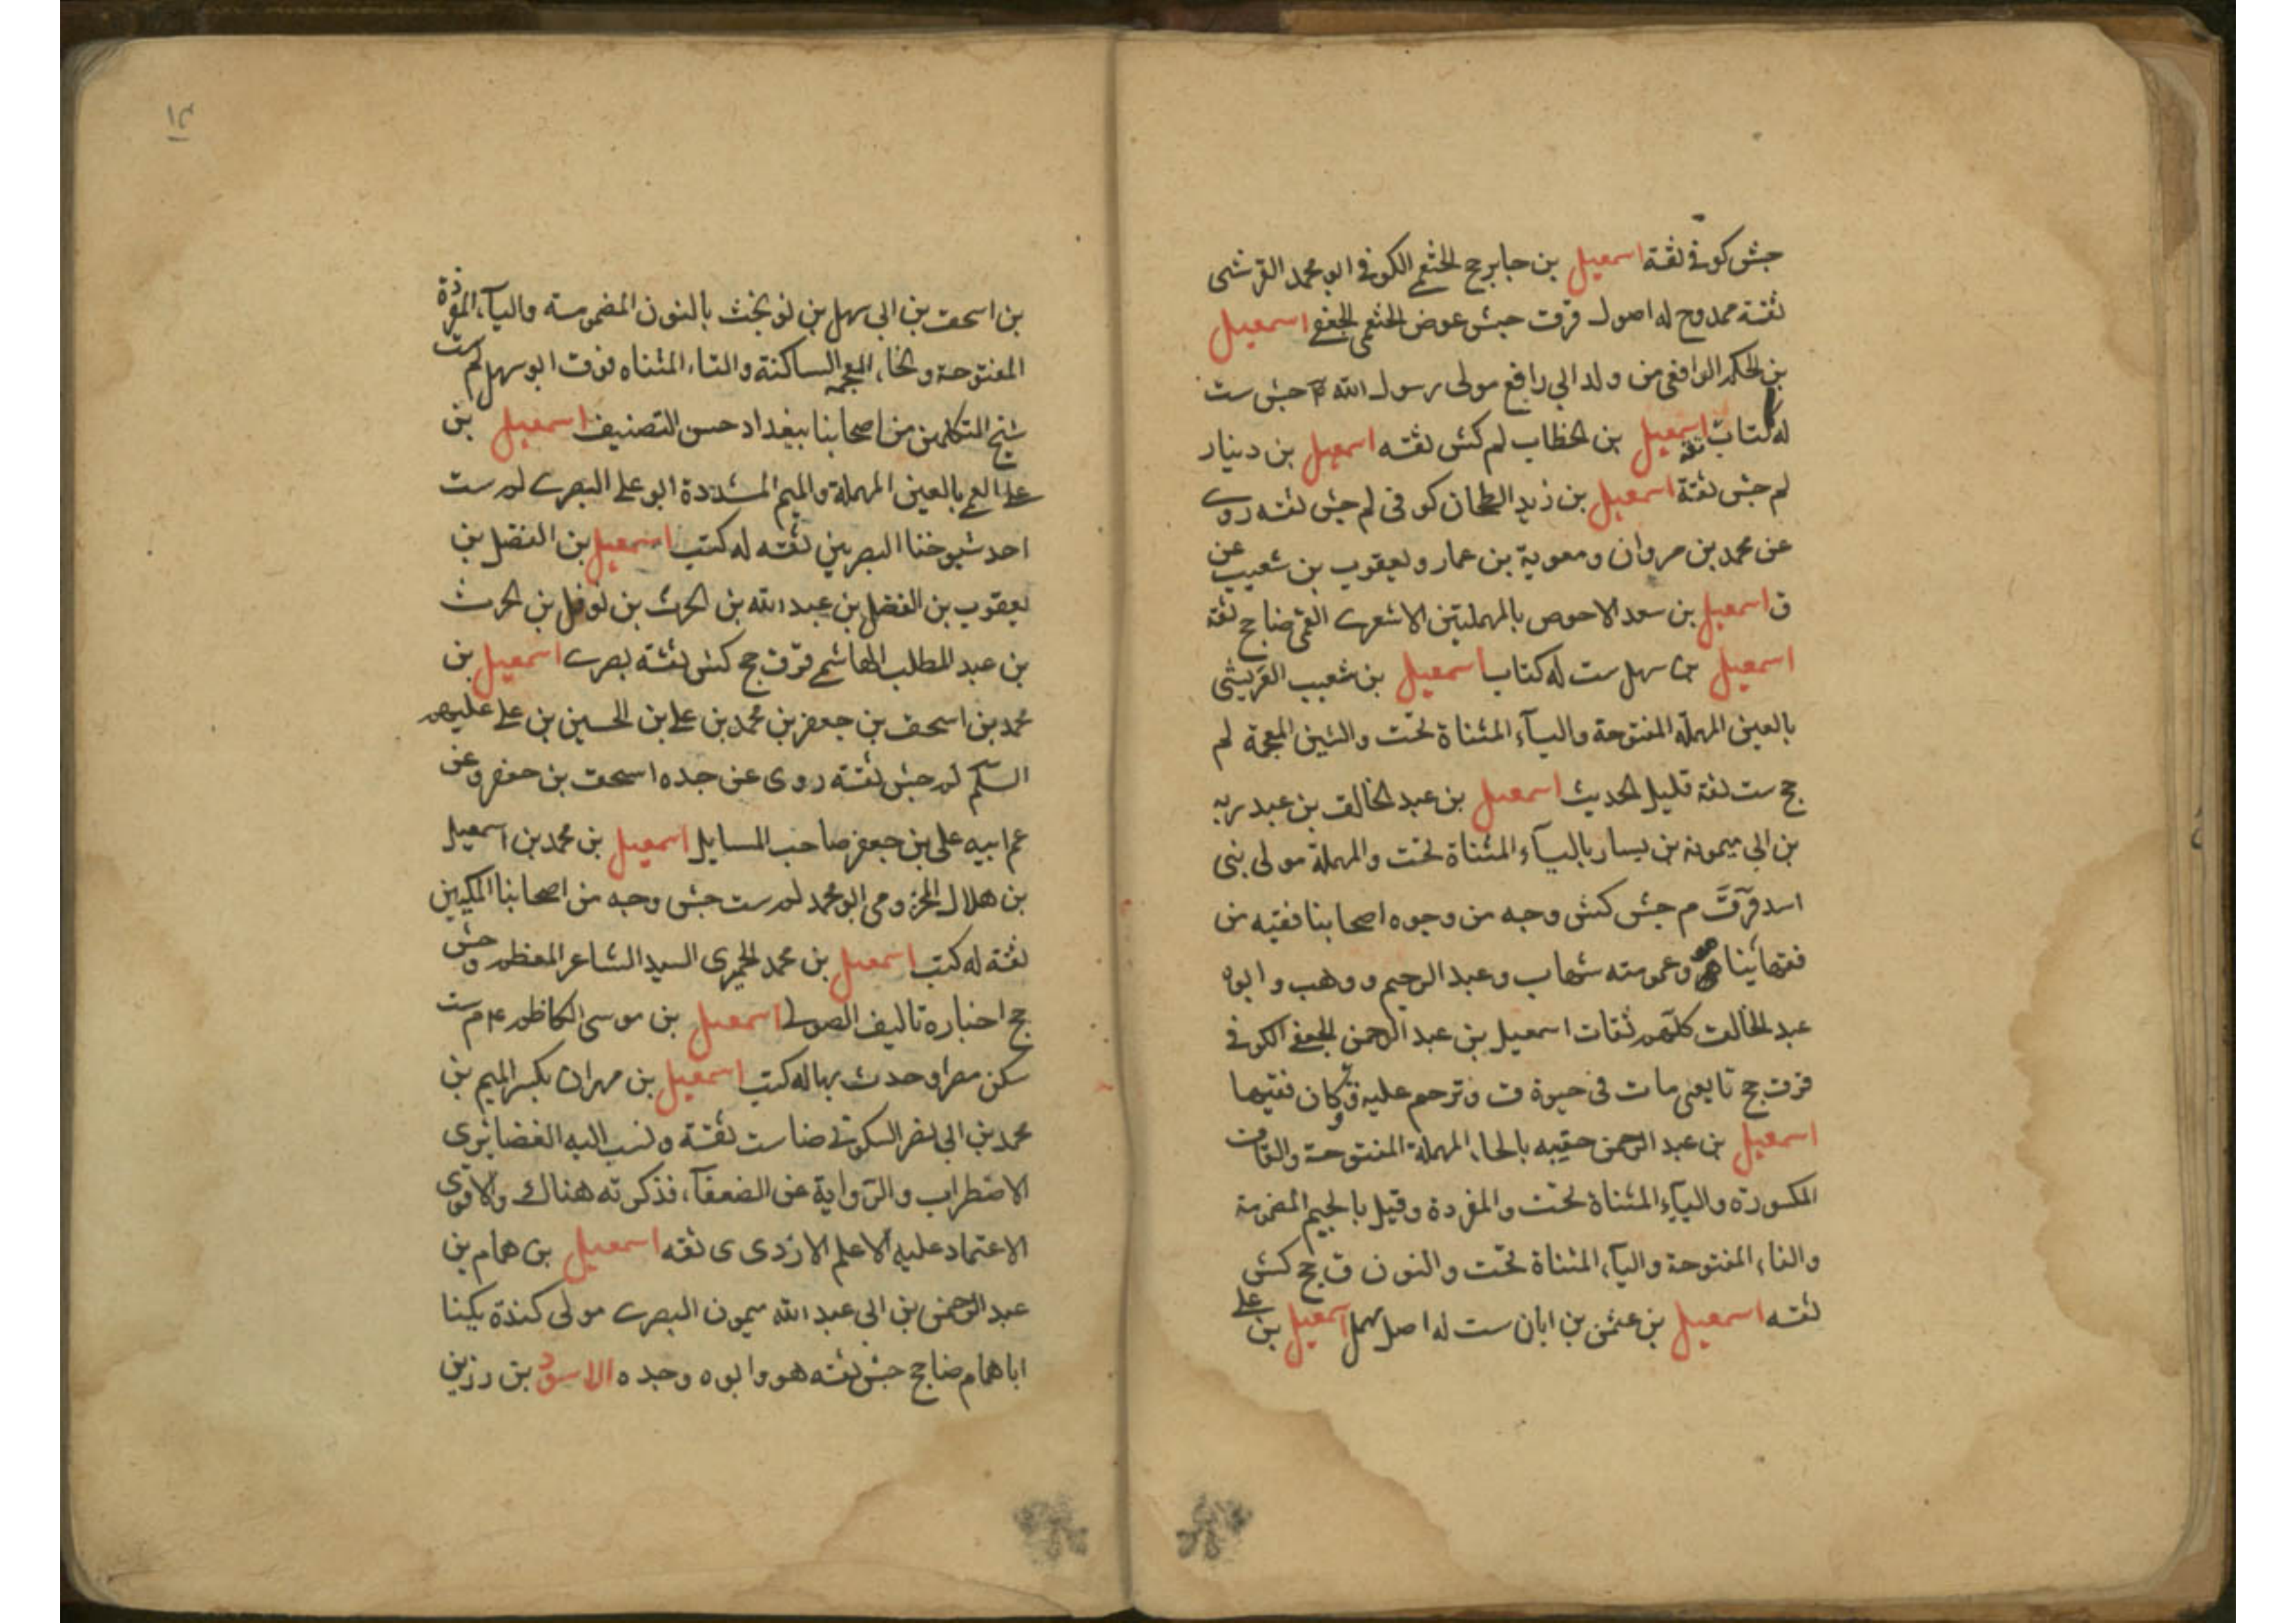 جش كوفي ثقة اسمعيل بن جابر جج الخثعمي الكوفي ابو محمد القرشى
ثقة ممدوح له اصول قرقت جش عوض الخثعمي الجعفي اسمعيل
بن الحكم الرافعي من ولد ابي رافع مولى رسول الله جش ست
له كتاب ثقة اسمعيل بن الخطاب لم كش ثقه اسمعيل بن دينار
لم جش ثقة اسمعيل بن زيد الطحان كوفى لم جش ثقه روى
عن محمد بن مروان ومعوية بن عمار ويعقوب بن شعيب عن
ق اسمعيل بن سعد الاحوص بالمهملتين الاشعرى القمي ضا جج ثقة
اسمعيل بن سهل ست له كتاب اسمعيل بن شعيب العريشى
بالعين المهملة المفتوحة واليآء المثناة تحت والشين المعجمة لم
جج ست ثقة قليل الحديث اسمعيل بن عبد الخالق بن عبد ربه
بن ابي ميمونة بن يسار باليآء المثناة تحت والمهملة مولى بنى
اسد قرقت م جش كش وجه من وجوه اصحابنا فقيه من
فقهائنا هو وعمومته شهاب وعبد الرحيم ووهب وابوه
عبد الخالق كلهم ثقات اسمعيل بن عبد الرحمن الجعفي الكوفي
قرقت جج تابعى مات فى حيوة ق وترحم عليه ق وكان فقيها
اسمعيل بن عبد الرحمن حقيبه بالحاء المهملة المفتوحة والقاف
المكسورة واليآء المثناة تحت والمفردة وقيل بالجيم المضمومة
والفاء المفتوحة واليآء المثناة تحت والنون ق جج كش
ثقه اسمعيل بن عثمن بن ابان ست له اصل مهمل اسمعيل بن على
١٣
بن اسحق بن ابي سهل بن نوبخت بالنون المضمومة واليآء المفردة
المفتوحة والخاء المعجمة الساكنة والتاء المثناه فوق ابو سهل لم ست
شيخ المتكلمين من اصحابنا ببغداد حسن التصنيف اسمعيل بن
على العمي بالعين المهملة والميم المشددة ابو على البصرى لم ست
احد شيوخنا البصريين ثقه له كتب اسمعيل بن الفضل بن
يعقوب بن الفضل بن عبد الله بن الحرث بن نوفل بن الحرث
بن عبد المطلب الهاشمي قرقت جج كش ثقة بصرى اسمعيل بن
محمد بن اسحق بن جعفر بن محمد بن على بن الحسين بن على عليهم
السلم لم جش ثقة روى عن جده اسحق بن جعفر وعن
عم ابيه على بن جعفر صاحب المسايل اسمعيل بن محمد بن اسمعيل
بن هلال المخزومى ابو محمد لم ست جش وجه من اصحابنا المكيين
ثقة له كتب اسمعيل بن محمد الحميرى السيد الشاعر المعظم ق جش
جج اخباره تاليف الصولى اسمعيل بن موسى الكاظم ع م ست
سكن مصر وحدث بها له كتب اسمعيل بن مهران بكسر الميم بن
محمد بن ابي نصر السكوني ضا ست ثقة ونسب اليه الغضائرى
الاضطراب والرواية عن الضعفآء فذكرته هناك والاقوى
الاعتماد عليه الاعلم الازدى ى ثقه اسمعيل بن همام بن
عبد الرحمن بن ابى عبد الله ميمون البصرى مولى كندة يكنا
ابا همام ضا جج جش ثقه هو وابوه وجده الاسود بن رزين